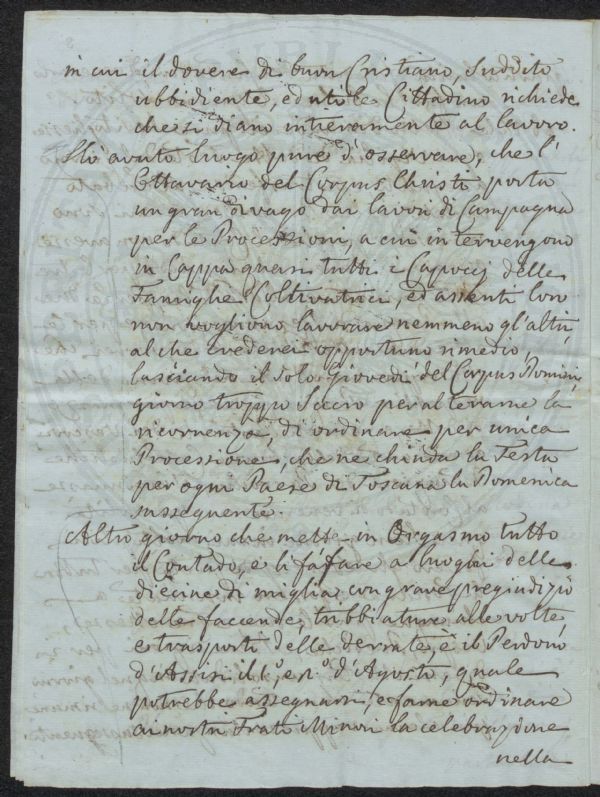 in cui il dovere di buon Cristiano, Suddito
ubbidiente, ed utole Cittadino richiede
che si diano intieramente al lavoro.
Hò avuto luogo pure d'osservare, che l'
Ottavario del Corpus Christi porta
un gran divago dai lavori di Campagna
per le Processioni, a cui intervengono
in Cappa quasi tutti i Capoccj delle
Famiglie Coltivatrici, ed assenti loro
non vogliono lavorare nemmeno gl'altri,
al che crederei opportuno rimedio,
lasciando il solo giovedi del Corpus Domini,
giorno troppo Sacro per alterarne la
ricorrenza, di ordinare per unica
Processione, che ne chiuda la Festa
per ogni Paese di Toscana la Domenica
susseguente.
Altro giorno che mette in Orgasmo tutto
il Contado, e li fà fare a luoghi delle
diecine di miglia con grave pregiudizio
delle faccende, tribbiature alle volte,
e trasporti delle derrate, è il Perdono
d'Assisi il 1.º, e 2.º d'Agosto, quale
potrebbe assegnarsi, e farne ordinare
ai nostri Frati Minori la celebrazione
nella